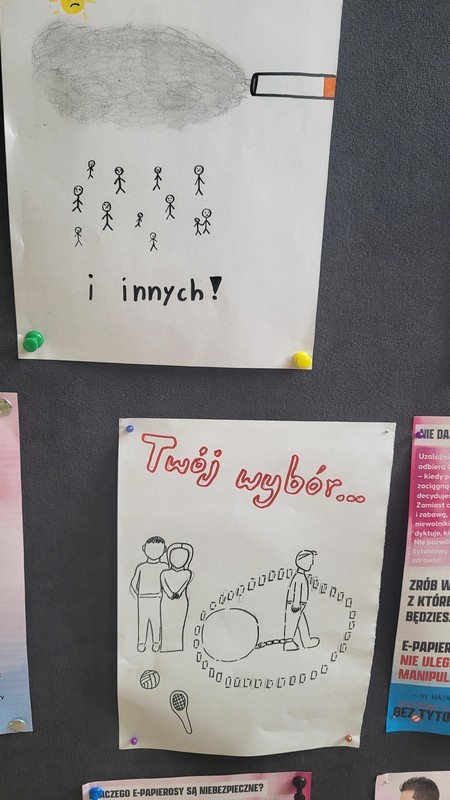 i innych!
Twój wybór...
NIE DA
Uzależni
odbiera
– kiedy p
zaciągną
decyduje
Zamiast
i zabawą,
niewolni
dyktuje, k
Nie pozwó
tytoniowy
zdrowia!
ZRÓB W
Z KTÓRE
BĘDZIES
E-PAPIER
NIE ULEG
MANIPUL
31 MAJA
BEZ TYTO
DLACZEGO E-PAPIEROSY SĄ NIEBEZPIECZNE?